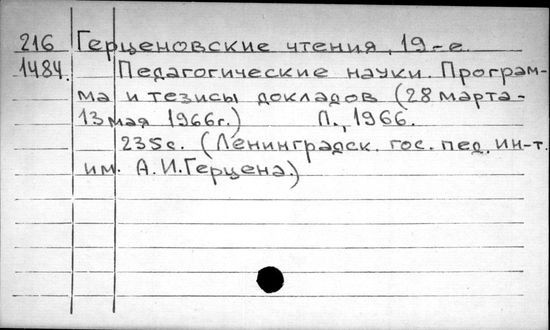 216 Герценовские чтения, 19-е.
1484. Педагогические науки. Програм-
ма и тезисы докладов (28 марта-
13 мая 1966г.) Л., 1966.
235с. (Ленинградск. гос. пед. ин-т.
им. А.И.Герцена.)